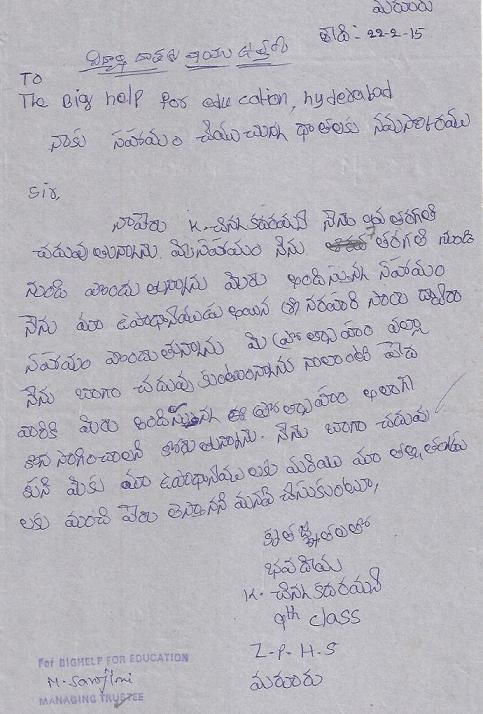 మరూరు
తాది: 22-2-15
విద్యార్థి దాతకు వ్రాయు ఉత్తరం
TO
The Big help for education, hyderabad
నాకు సహాయం చేయుచున్న దాతలకు నమస్కారము
Sir,
నాపేరు K. చిన్న కదరయ్య నేను 9వ తరగతి
చదువుతున్నాను. మీ సహాయం నేను 7 తరగతి నుండి
నుండి పొందుతున్నాను మీరు అందిస్తున్న సహాయం
నేను మా ఉపాధ్యాయుడు అయిన శ్రీ నరహరి సారు ద్వారా
సహాయం పొందుతున్నాను మీ ప్రోత్సాహం వల్ల
నేను బాగా చదువుకుంటున్నాను నాలాంటి పేద
వారికి మీరు అందిస్తున్న ఈ ప్రోత్సాహం అలాగే
కొనసాగించాలని కోరుతున్నాను. నేను బాగా చదువు
కుని మీకు మా ఉపాధ్యాయులకు మరియు మా తల్లితండ్రు
లకు మంచి పేరు తెస్తానని మనవి చేసుకుంటూ,
కృతజ్ఞతలతో
భవదీయ
K. చిన్న కదరయ్య
9th class
Z-P-H-S
మరూరు
For BIGHELP FOR EDUCATION
M. Sarojini
MANAGING TRUSTEE